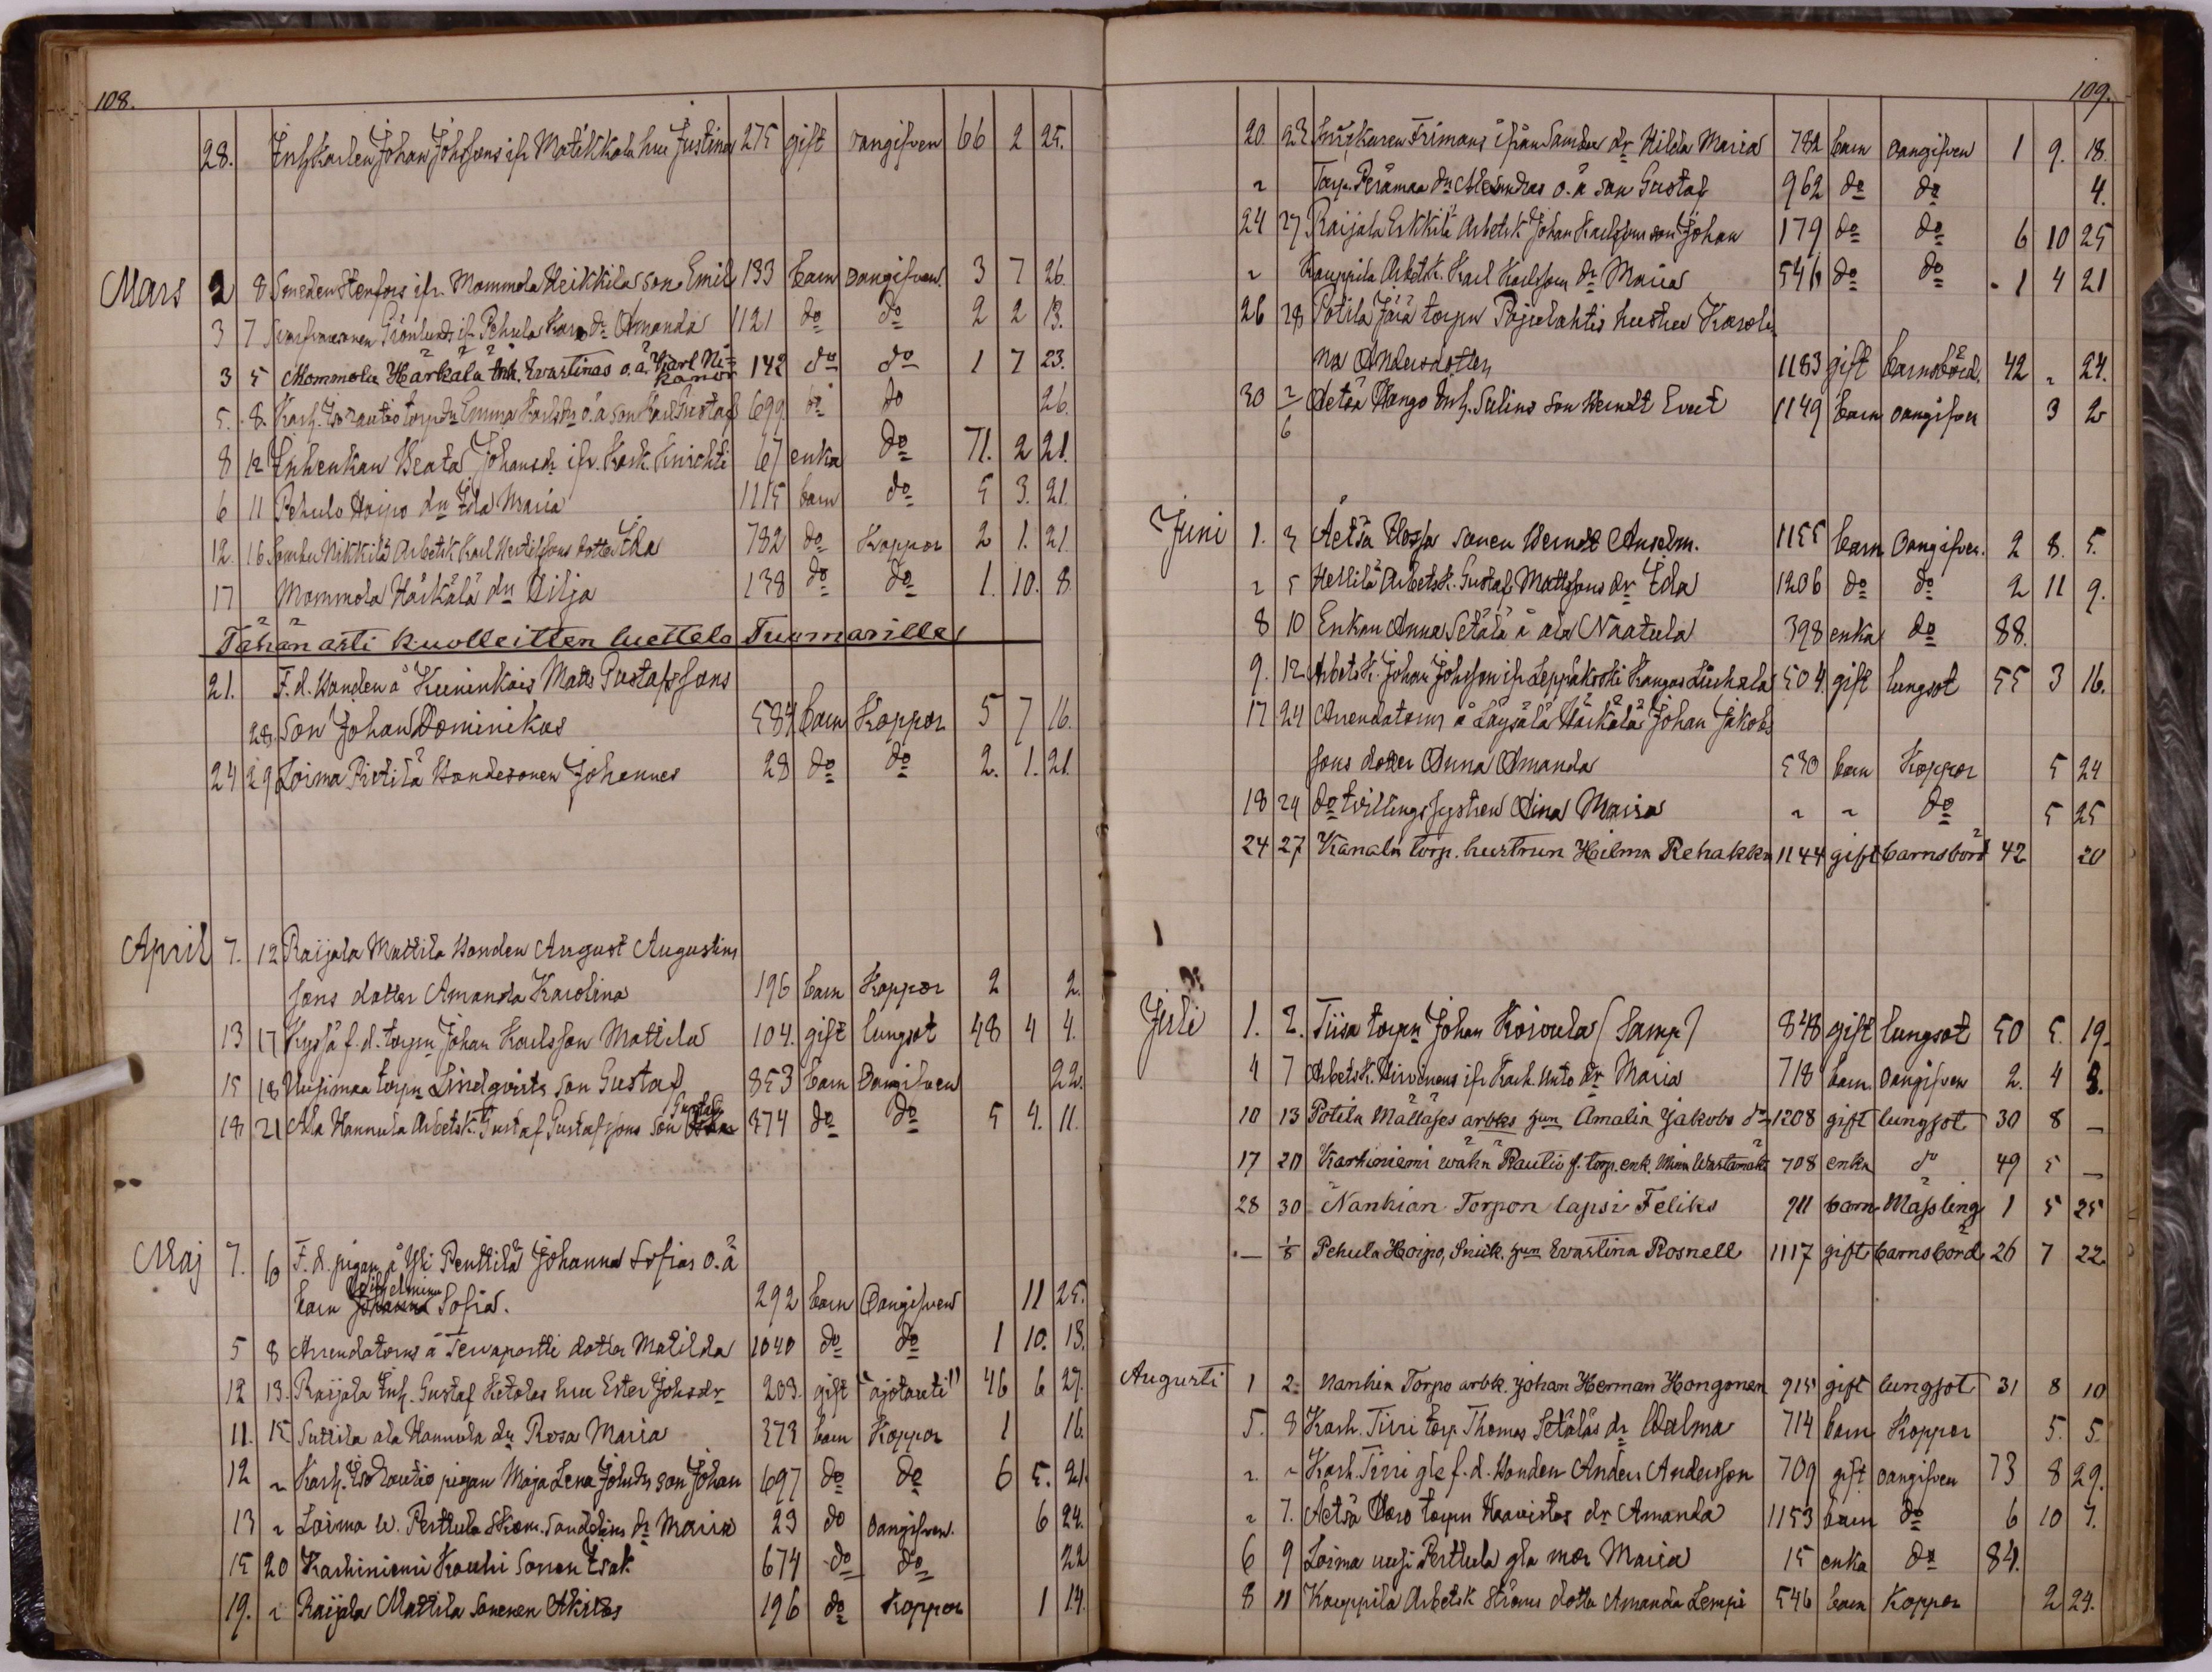 108.
28. Johan Johssons ifr Matikkala hu Justina 275 gift oangifven 66 2 25.
Mars 2 8 Smeden Stenfors ifr. Mommola Heikkila son Emil 133 barn oangifven 3 7 26.
3 7 Grönlunds ifr Pehula dr Amanda 1121 do do 2 2 13.
3 5 Mommola Härkälä Inh. Evastinas o.ä. Karl Ni=
kanor 142 do do 1 7 23.
5. 8. Kark. Isorautio torp dr Emma Karlsdr o.ä son Karl Gustaf 699 do do 26.
8 12 Inhenkan Beata Johansdr ifr. Kark. Knichti 67 enka do 71. 2 21.
6 11 Pehula Hoipo dr Ida Maria 1115 barn do 5 3. 21.
12. 16. Nikkilä Arbetsk Karl dotter Ida 782 do Koppor 2 1. 21.
17 Mommola Härkälä dr Lilja 138 do do 1. 10. 8
Tähän asti kuolleitten luettelo Tuomarille
21. F. d. bonden å Kuninkais Matts Gustafssons
28. son Johan Dominikus 584 barn Koppor 5 7 16.
24 29 Loima Pietilä bondesonen Johannes 28 do do 2. 1. 21.
April 7. 12 Raijala Mattila bonden August Augustins
sons dotter Amanda Karolina 196 barn Koppor 2 2.
13 17 f. d. torpn Johan Karlsson Mattila 104. gift lungsot 48 4 4.
15 18 Uusimaa torpn Lindqvists son Gustaf 853 barn Oangifven 22.
18 21 Ala Hannula Arbetsk. Gustaf Gustafssons son Gustaf 374 do do 5 4. 11.
Maj 7. 6 F. d. pigan å Yli Penttilä Johanna Sofias o.ä
barn Johanna Vilhelmina Sofia. 292 barn Oangifven 11 25.
5 8 Arendatorns å Tervaportti dotter Matilda 1040 do do 1 10. 13.
12 13. Raijala Inh. Gustaf Ketolas hu Ester Johsdr 203. gift "ajotauti" 46 6 27.
11. 15 Suttila ala Hannula dr Rosa Maria 373 barn Koppor 1 16.
12 " Kark. Iso Rautio pigan Maja Lena Johsdrs son Johan 697 do do 6 5. 21.
13 " Loima w. Perttula Skom. Sandelins dr Maria 23 do oangifven. 6 24.
15 20 Karhiniemi Kouhi sonen Isak 674 do do 22
19. " Raijala Mattila sonen Akilles 196 do Koppor 1 14.
109.
20. 23 Frimans ifrån Sambu dr Hilda Maria 782 barn oangifven 1 9. 18.
" Torp. Perämaa dr Alexandras o. ä son Gustaf 962 do do 4.
24 27 Raijala Erkkilä Arbetsk Johan Karlssons son Johan 179 do do 6 10 25
" Kauppila Arbetsk. Karl Karlsson dr Maria 546 do do 1 4 21
26 28 Potila Jaiä torpn Pajulahtis hustru Karoli
na Andersdotter 1183 gift barnsbörd. 42 " 24.
30 2/6 Aetsä Hango Inh. Salins son Werndt Evert 1149 barn oangifven 3 2
Juni 1. 3 Äetsä sonen Werndt Anselm. 1155 barn Oangifven. 2 8. 5.
" 5 Hellilä Arbetsk. Gustaf Mattssons dr Ida 1206 do do 2 11 9.
8 10 Enkan Anna Setälä å ala Naatula 398 enka do 88.
9. 12 Arbetsk. Johan Johsson ifr Leppäkoski Kangas Liuhala 504. gift lungsot 55 3 16.
17 24 Arendatorns å Löysälä Härkälä Johan Jakobs
sons dotter Anna Amanda 530 barn Koppor 5 24
18 24 do tvillingssystren Aina Maria " " do 5 25
24 27 Kanala torp. hustrun Hilma Rehakka 1144 gift barnsbörd 42 20
Juli 1. 2. Tiisa torpn Johan Koivula (Samp) 848 gift lungsot 50 5. 19.
4 7 Arbetsk. Hirvonens ifr Kark. Unto dr Maria 718 barn oangifven 2. 4 3.
10 13 Potila Mälläses arbks hun Amalia Jakobs dr 1208 gift lungsot 30 8 —
17 20 Karhiniemi waha Rautio f. torp. enk. Miina Wastamäki 708 enka do 49 5 —
28 30 Nanhian Torpon lapsi Feliks 911 barn Mässling 1 5 25
— 1/8 Pehula Hoipo, Snick. hun Evastina Rosnell 1117 gift barnsbörd 26 7 22.
Augusti 1 2 Nanhia Torpo arbk. Johan Herman Hongonen 915 gift lungsot 31 8 10
5. 8 Kark. Tiiri torp Thomas Setäläs dr Walma 714 barn Koppor 5. 5.
" " Kark. Tiiri gle f. d. bonden Anders Andersson 709 gift oangifven 73 8 29.
" 7. Äetsä torpn Haavistos dr Amanda 1153 barn do 6 10 7.
6 9 Loima uusi Perttula gla mor Maria 15 enka do 84.
8 11 Kauppila Arbetsk Ströms dotter Amanda Lempi 546 barn Koppor 2 24.